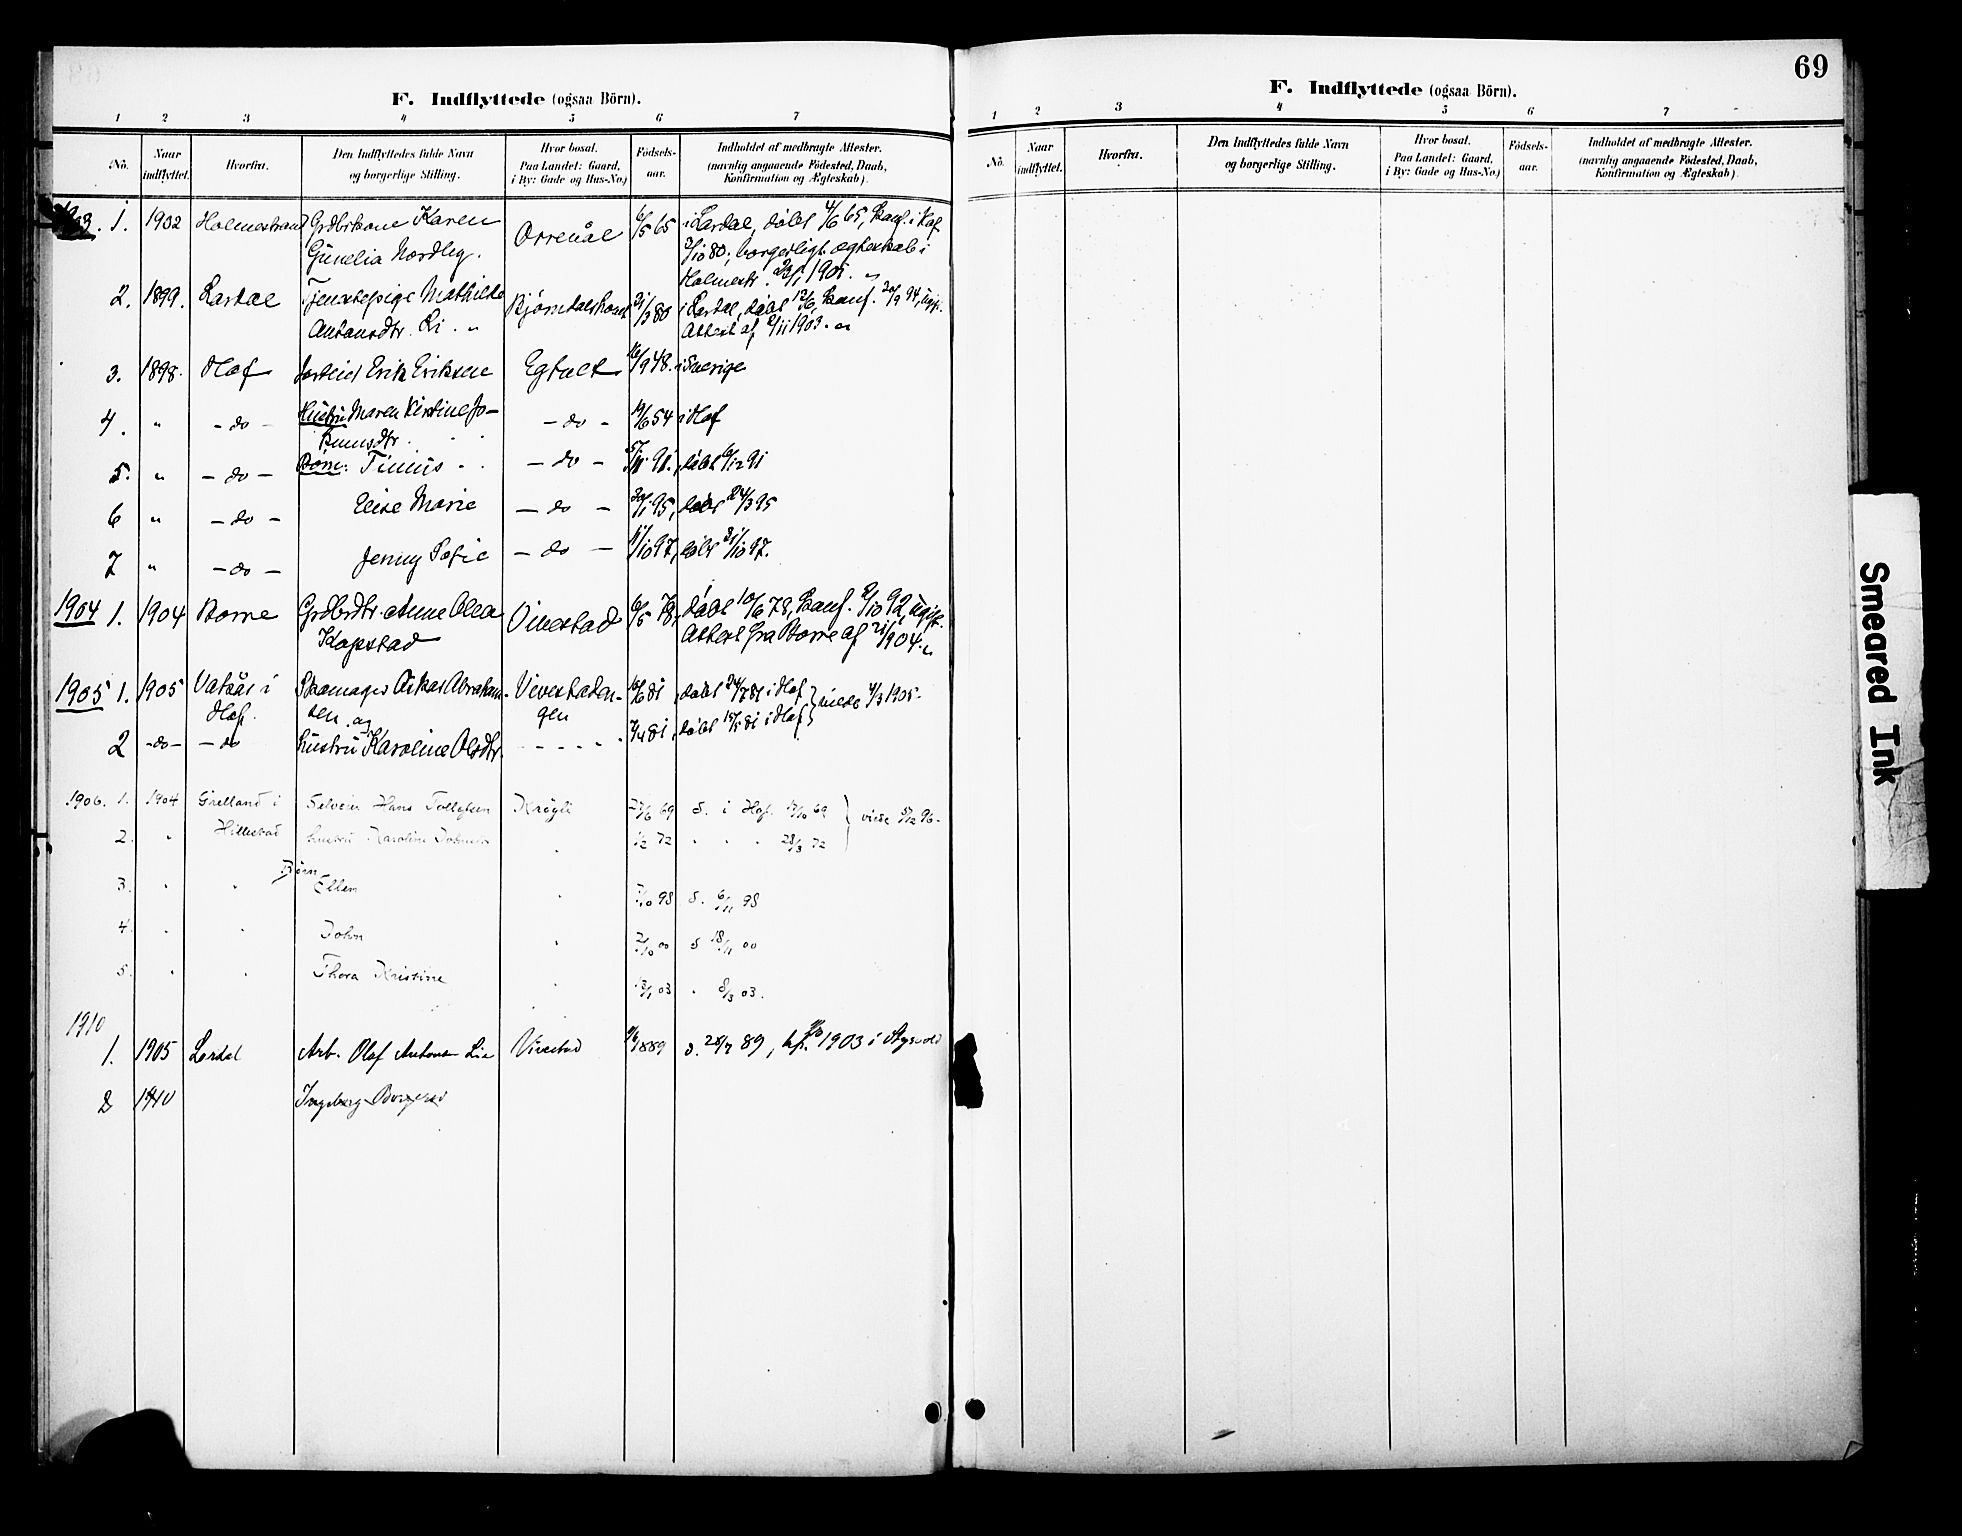 F. Indflyttede (ogsaa Börn).
1 2 3 4 5 6 7
No. Naar indflyttet. Hvorfra. Den Indflyttedes fulde Navn og borgerlige Stilling. Hvor bosat. Paa Landet: Gaard, i By: Gade og Hus-No.) Födsels-aar. Indholdet af medbragte Attester. (navnlig angaaende Födested, Daab, Konfirmation og Ægteskab).
1903. 1. 1902 Holmestrand Grdbrkone Karen Orrevål 6/5 65 i Lardal, døbt 4/6 65, konf. i Hof
Gunelia Nordby. 3/10 80; borgerligt ægteskab i
Holmestr. 1901. "
2. 1899. Lardal Tjenstepige Mathilde 21/3 80 i Lardal, døbt 13/6, konf. 94, ugift.
Antonsdtr. Li. " Attest af 1903. "
3. 1898. Hof Erik Eriksen 16/9 48. i Sverige
4. " - do - Hustru Maren Kirstine Jo- - do - 19/6 54 i Hof
5. " - do - Børn: - do - 91. døbt 6/12 91
6 " - do - Elise Marie - do - 95, døbt 24/3 95
7 " - do - Jenny Sofie - do - 11/10 97, døbt 31/10 97.
1904 1. 1904 Borre Grdbrdtr. Anne Olea Vivestad 6/5 78, døbt 10/6 78, konf. 2/10 92, ugift.
Kopstad Attest fra Borre af 21/1 904. "
1905 1. 1905 i Skomager Oskar Abraham- Vivestaden- 81, døbt 24/7 81 i Hof } viede 4/3 1905.
Hof. sen og gen
2 -do- - do Hustru Karoline Olsdtr. - - - - - 81, døbt 15/5 81 i Hof
1906. 1. 1904 Grelland i Selveier Hans Tollefsen Krøgli 27/6 69 d. i Hof. 17/10 69 } viede 5/12 96.
2. " Hillestad hustru Karoline " 1/2 72 " " " 28/3 72
Børn
3. " " Ellen " 7/10 98 d. 6/11 98
4. " " John " 2/10 00 d 18/11 00
5. " " Thora Kristine " 13/1 03 " 8/3 03.
1910
1. 1905 Lardal Arb. Olaf Antonsen Lie Vivestad 1889 d. 28/7 89, kf. 1903 i
2 1910 Ingeborg Borgersd
69
F. Indflyttede (ogsaa Börn).
1 2 3 4 5 6 7
No. Naar indflyttet. Hvorfra. Den Indflyttedes fulde Navn og borgerlige Stilling. Hvor bosat. Paa Landet: Gaard, i By: Gade og Hus-No.) Födsels-aar. Indholdet af medbragte Attester. (navnlig angaaende Födested, Daab, Konfirmation og Ægteskab).
Smeared Ink